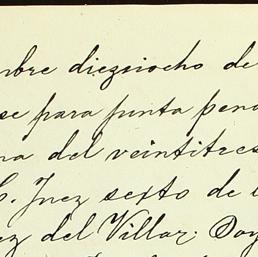 mbre diezsiocho de
se para junta pena
na del veintitres
C. Juez sexto de
ez del Villar. Doy